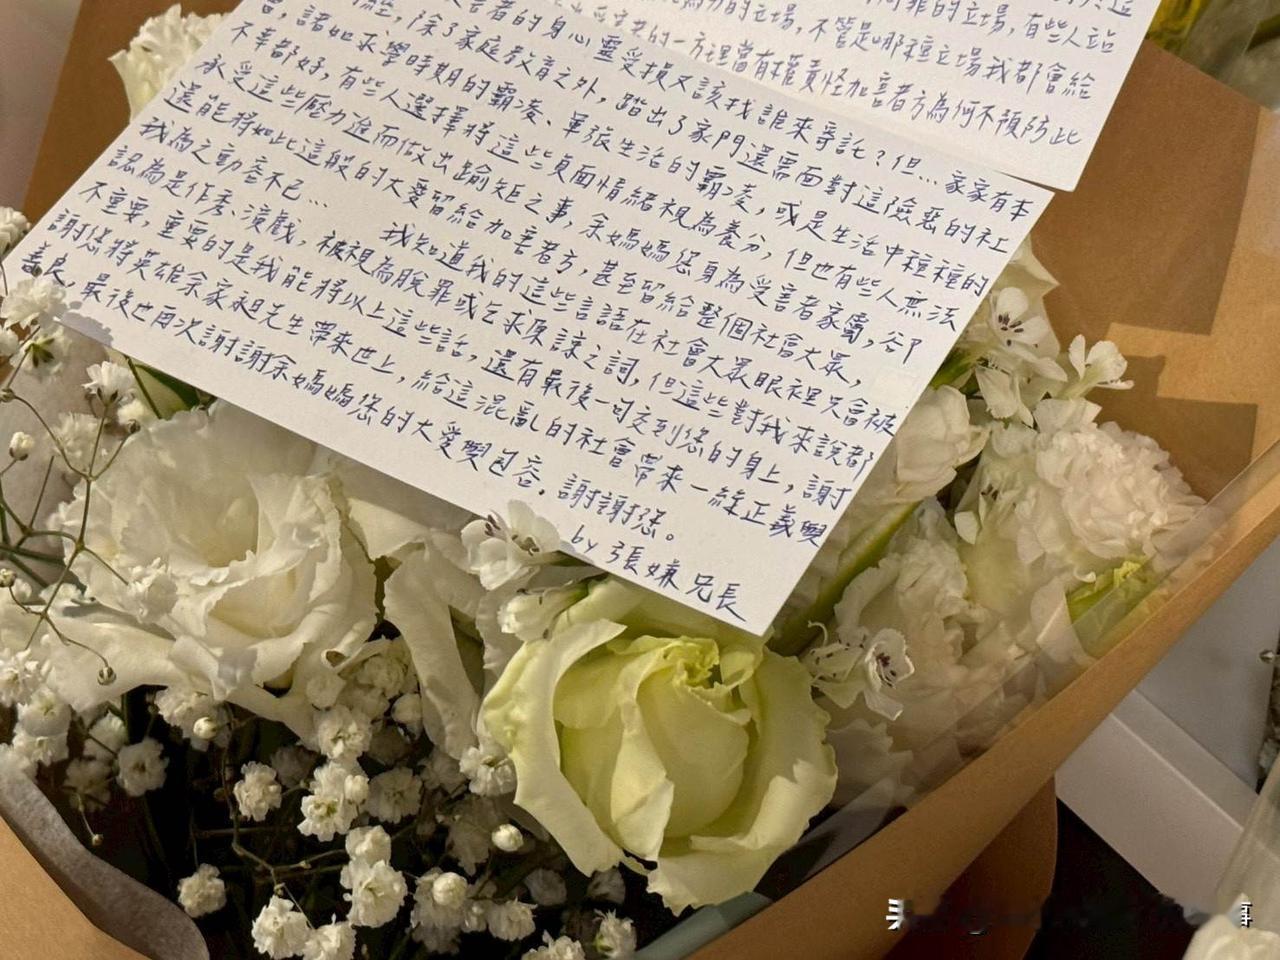 的立場，有些人站
力的立場，不管是哪種立場我都會給
的一方理當有權責怪加害者方為何不預防此
害者的身心靈受損又該找誰來寄託？但…家家有本
經，除了家庭教育之外，踏出了家門還需面對這險惡的社
諸如求學時期的霸凌、軍張生活的霸凌，或是生活中種種的
不幸都好，有些人選擇將這些負面情緒視為養分，但也有些人無法
承受這些壓力進而做出踰矩之事，余媽媽您身為受害者家屬，卻
還能將如此這般的大愛留給加害者方，甚至留給整個社會大眾，
我為之動容不已… 我知道我的這些言語在社會大眾眼裡只會被
認為是作秀、演戲，被視為脫罪或乞求原諒之詞，但這些對我來說都
不重要，重要的是我能將以上這些話，還有最後一句交到您的身上，謝
謝您將英雄余家昶先生帶來世上，給這混亂的社會帶來一絲正義與
善良，最後也再次謝謝余媽媽您的大愛與包容．謝謝您。
by 張嫌兄長